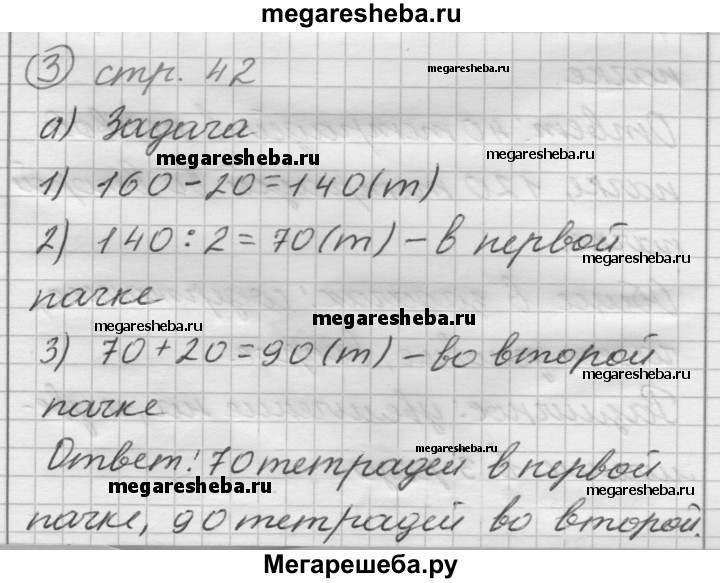 megaresheba.ru
③ стр. 42
megaresheba.ru
а) Задача
megaresheba.ru
megaresheba.ru
1) 160-20=140(т)
2) 140:2=70(т) – в первой
megaresheba.ru
пачке
megaresheba.ru
megaresheba.ru
3) 70+20=90(т) – во второй
megaresheba.ru
пачке
megaresheba.ru
Ответ: 70 тетрадей в первой
megaresheba.ru
megaresheba.ru
пачке, 90 тетрадей во второй.
Мегарешеба.ру